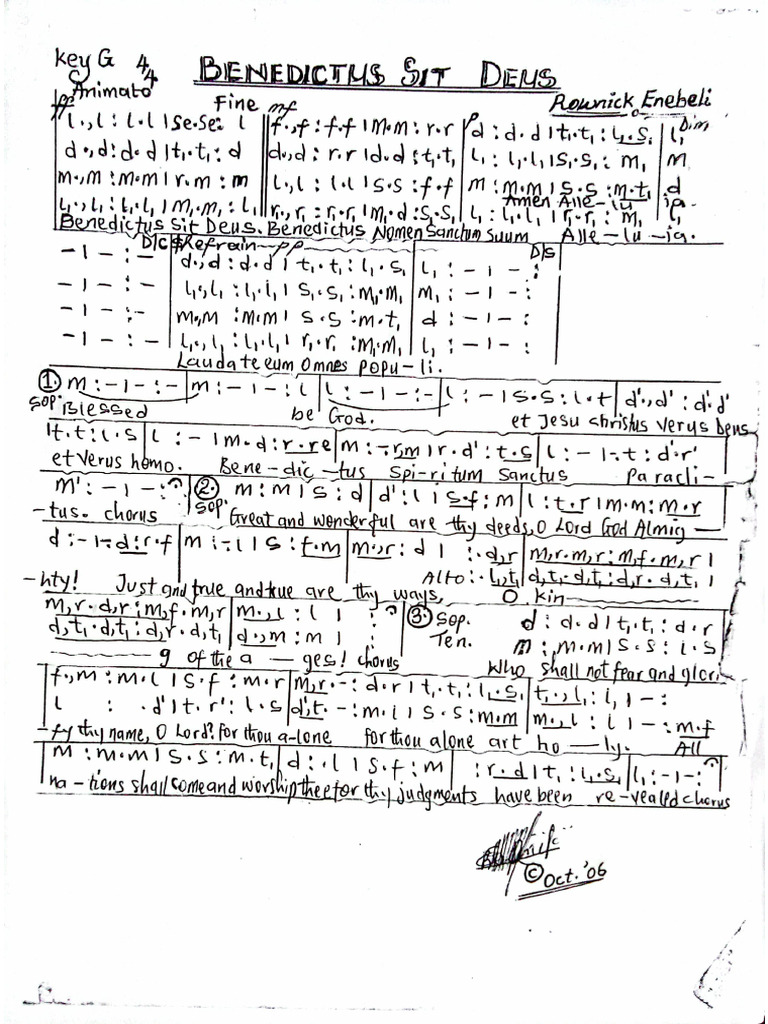 Key G 4/4 BENEDICTUS SIT DEUS
C Animato Fine mf Rownick Enebeli
ff l.,l : l.l | se.se : l || f.,f : f.f | m.m : r.r | p d : d.d | t₁.t₁ : l₁.s₁ | l₁ Dim
d.,d : d.d | t₁.t₁ : d || d.,d : r.r | d.d : t₁.t₁ | l₁ : l₁.l₁ | s₁.s₁ : m₁ | m
m.,m : m.m | r.m : m || l.,l : l.l | s.s : f.f | m : m.m | s.s : m.t₁ | d
Amen Alle-lu ia
l₁.,l₁ : l₁.l₁ | m₁.m₁ : l₁ || r₁.,r₁ : r₁.r₁ | m₁.d : s₁.s₁ | l₁ : l₁.l₁ | r₁.r₁ : m₁ | l₁
Benedictus Sit Deus. Benedictus Nomen Sanctum Suum Alle-lu-ia.
D/C $ Refrain pp D/S
- | - : - | d.,d : d.d | t₁.t₁ : l₁.s₁ | l₁ : - | - :
- | - : - | l₁.,l₁ : l₁.l₁ | s₁.s₁ : m₁.m₁ | m₁ : - | - :
- | - : - | m.,m : m.m | s.s : m.t₁ | d : - | - :
- | - : - | l₁.,l₁ : l₁.l₁ | r₁.r₁ : m₁.m₁ | l₁ : - | - :
Laudate eum Omnes popu-li.
1. m : - | - : - | m : - | - : l | l : - | - : - | l : - | s.s : l.t | d'.,d' : d'.d'
Sop. Blessed be God. et Jesu Christus Verus Deus
| t.t : l.s | l : - | m.d : r.re | m : -.r,m | r.d' : t.s | l : - | -.t : d'.r'
et Verus homo. Bene-dic-tus Spi-ritum Sanctus Paracli-
m' : - | - : | 2. m : m | s : d | d' : l | s.f : m | l : t.r | m.m : m.r
-tus. chorus Sop. Great and wonderful are thy deeds, O Lord God Almig-
d : - | -.d : r.f | m : - | s : f.m | m.,r : d | : .d,r | m,r.m,r : m,f.m,r |
Alto : . l₁,t₁ | d,t₁.d,t₁ : d,r.d,t₁ |
-hty! Just and true and true are thy ways, O kin
m,r.d,r : m,f.m,r | m.,l : l | : | 3. Sop. d : d.d | t₁.t₁ : d.r
d,t₁.d,t₁ : d,r.d,t₁ | d.,m : m | : | Ten. m : m.m | s.s : l.s
g of the a-ges! chorus Who shall not fear and glori-
f.,m : m.l | s.f : m.r | m,r.- : d.r | t₁.t₁ : l₁.s₁ | t₁.,l₁ : l₁ | - :
l : .d' | t.r' : l.s | d',t.- : m.l | s.s : m.m | m.,l : l | - : m.f
-fy thy name, O Lord? for thou a-lone for thou alone art ho-ly. All
m : m.m | s.s : m.t₁ | d : .l | s.f : m | : r.d | t₁ : l₁.s₁ | l₁ : - | - :
na-tions shall come and worship thee for thy judgments have been re-vealed chorus
© Oct.'06